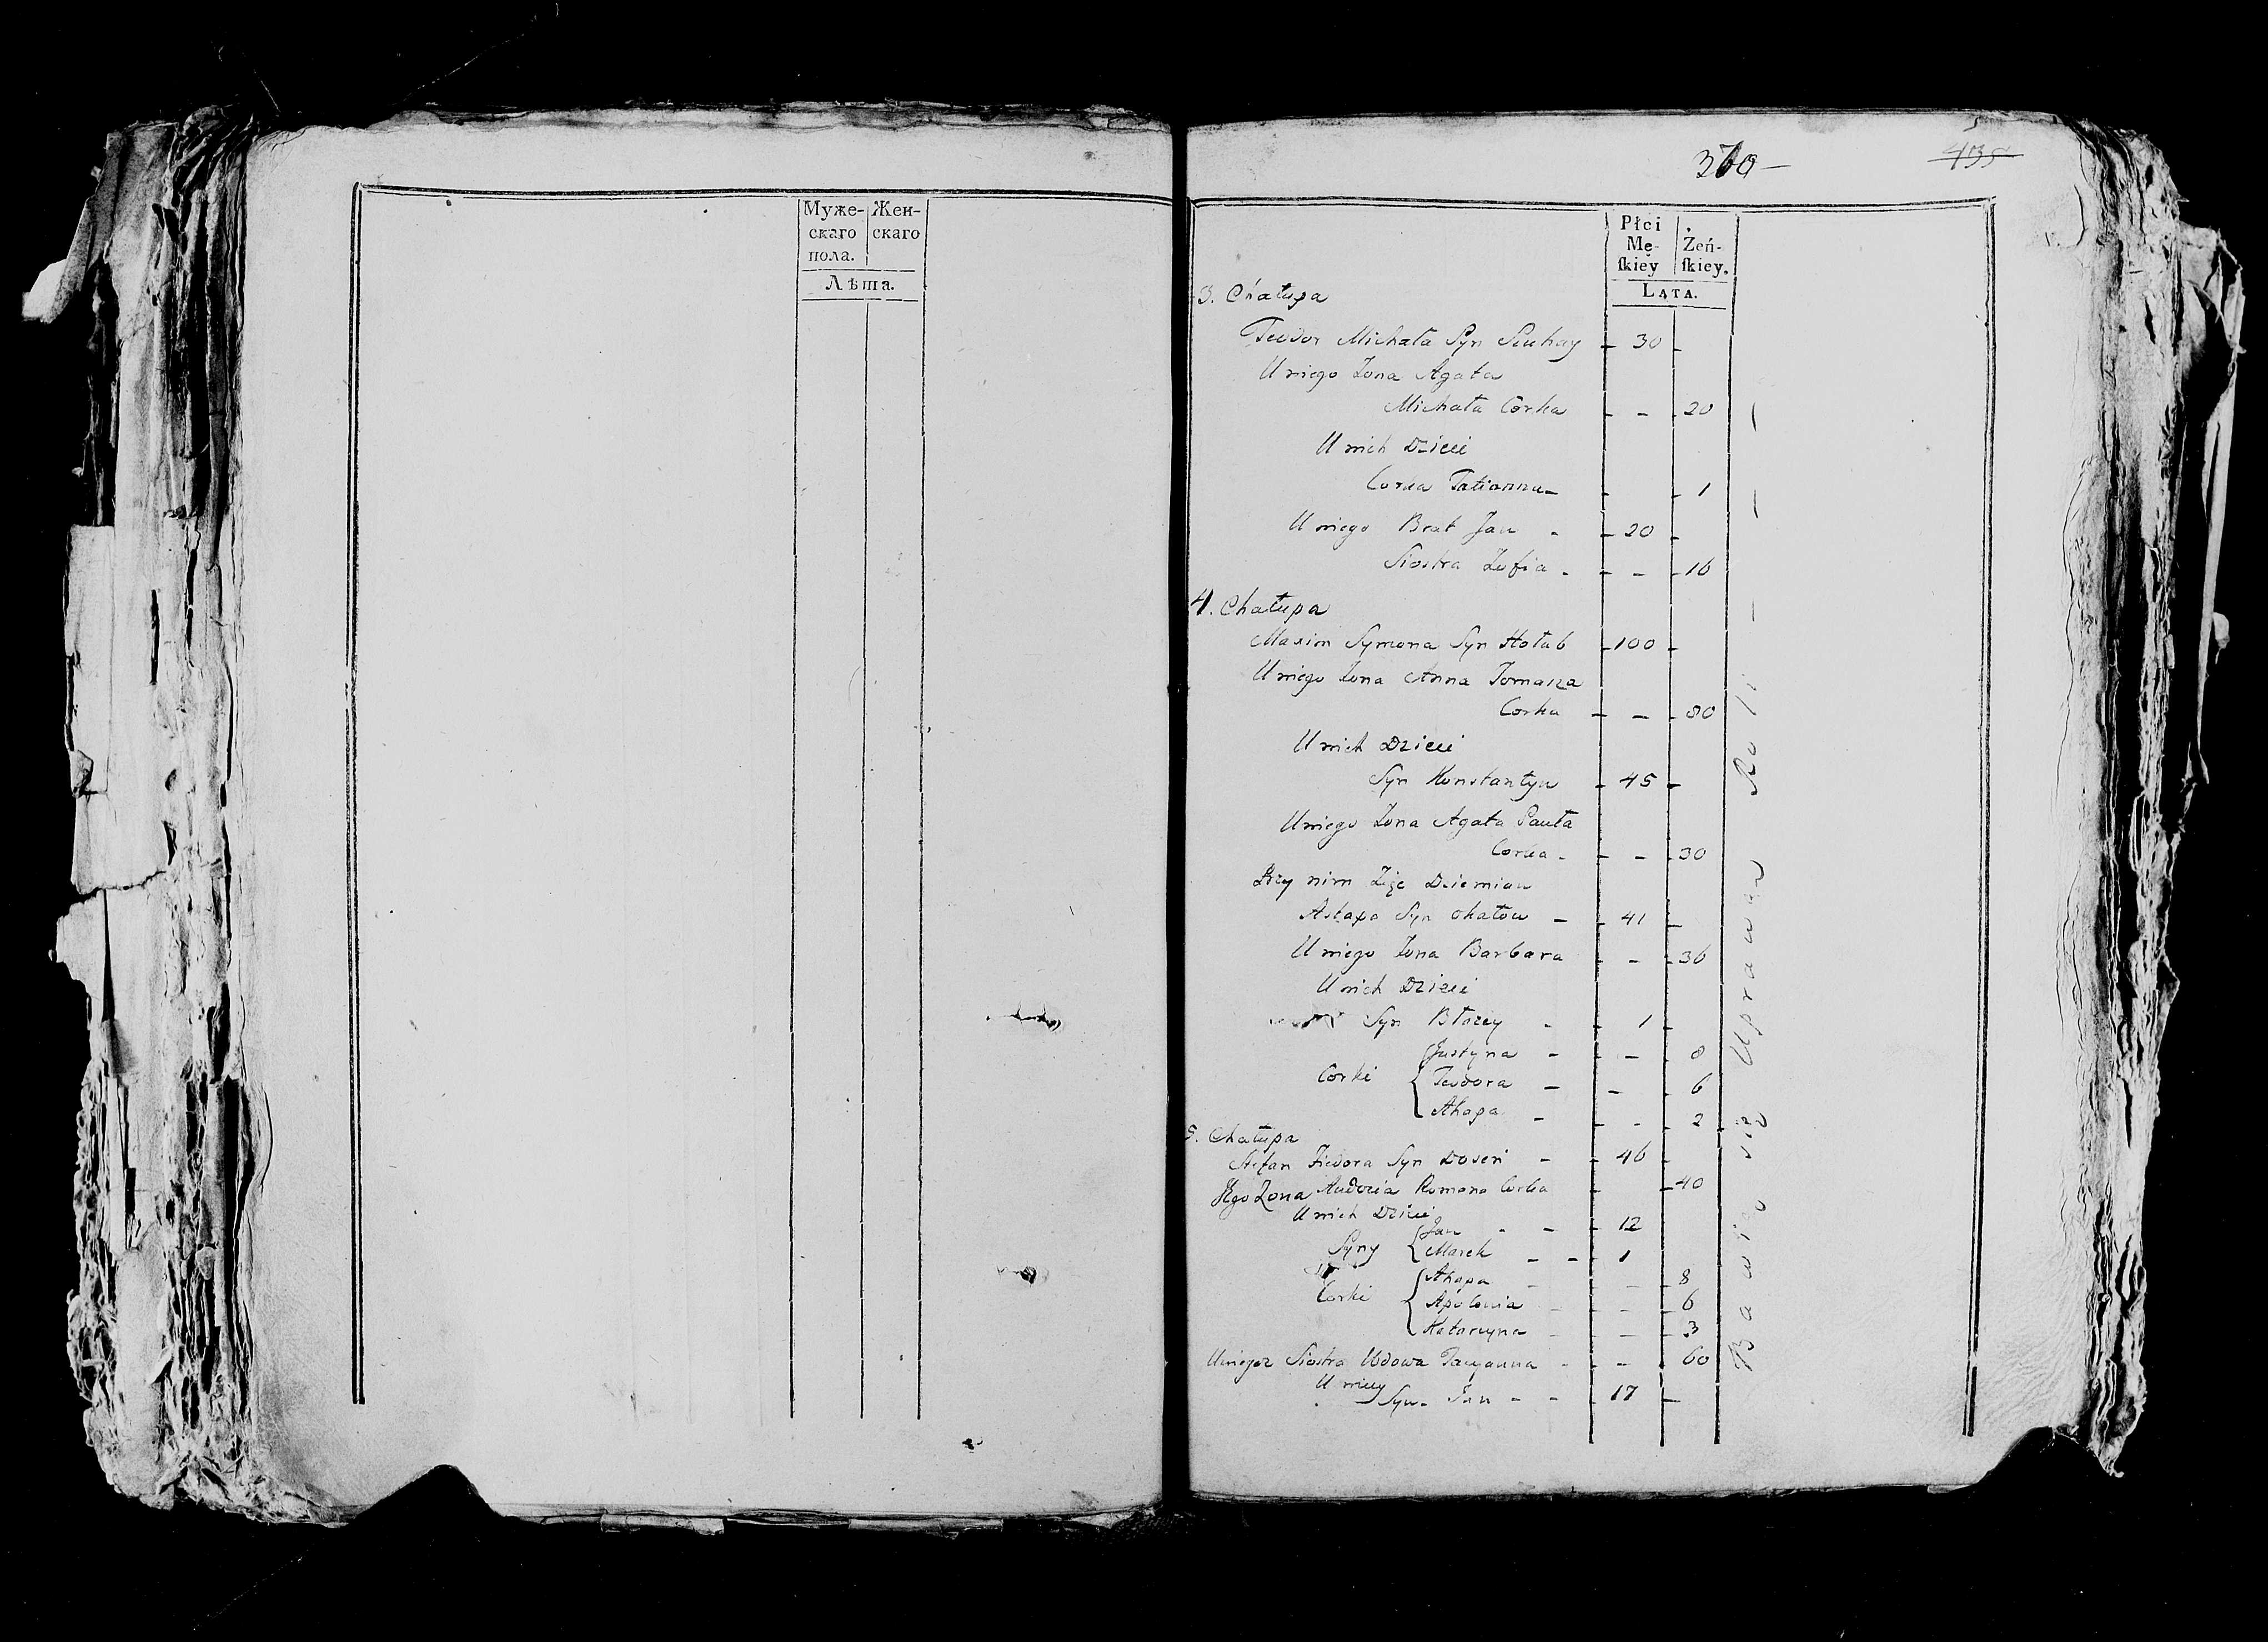 Муже-
скаго
пола.
Жен-
скаго
Лѣта.
435
Płci
Mę-
ſkiey
Żeń-
ſkiey.
LATA.
3. Chałupa
Teodor Michała Syn 30
U niego Żona Agata
Michała Corka - - 20
U nich Dzieci
Corka Tatianna - - 1
U niego Brat Jan - - 20 -
Siostra Zofia - - - 16
4. Chałupa
Maxim Symona Syn Hołub - 100 -
U niego Żona Anna Tomasza
Corka - - 80
U nich Dzieci
Syn Konstantyn - 45 -
U niego Żona Agata Pauła
Corka - - - 30
Przy nim Dziemian
Astapa Syn - 41 -
U niego Żona Barbara - - 36
U nich Dzieci
Syn Błażey - - 1 -
Corki { Justyna - - - 8
Teodora - - 6
Ahapa - - - 2
5. Chałupa
Stefan Fiedora Syn - - 46 -
Jego Żona Audocia Romana Corka - - 40
U nich Dzieci
Syny { Jan - - - 12
Marek - - - 1
Corki { Ahapa - - 8
Apolonia - - - 6
Katarzyna - - - 3
Siostra Wdowa - - 60
U niey
Syn - Jan - - 17 -
Bawią się Uprawą Roli - - -